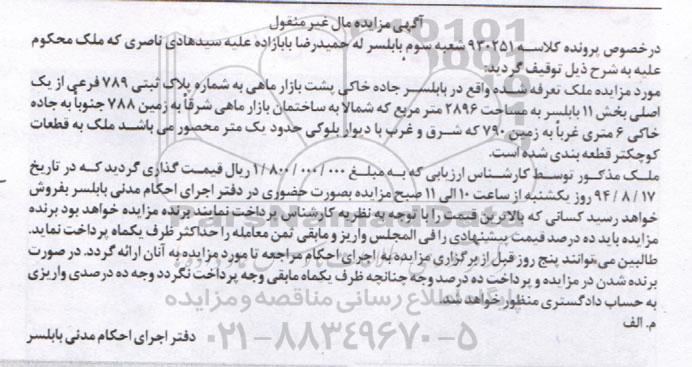 آگهی مزایده مال غیر منقول
درخصوص پرونده کلاسه ۹۳۰۲۵۱ شعبه سوم بابلسر له حمیدرضا بابازاده علیه سیدهادی ناصری که ملک محکوم
علیه به شرح ذیل توقیف گردید:
مورد مزایده ملک تعرفه شده واقع در بابلسر جاده خاکی پشت بازار ماهی به شماره پلاک ثبتی ۷۸۹ فرعی از یک
اصلی بخش ۱۱ بابلسر به مساحت ۲۸۹۶ متر مربع که شمالا به ساختمان بازار ماهی شرقاً به زمین ۷۸۸ جنوباً به جاده
خاکی ۶ متری غرباً به زمین ۷۹۰ که شرق و غرب با دیوار بلوکی حدود یک متر محصور می باشد ملک به قطعات
کوچکتر قطعه بندی شده است.
ملک مذکور توسط کارشناس ارزیابی که به مبلغ ۱/۸۰۰/۰۰۰/۰۰۰ ریال قیمت گذاری گردید که در تاریخ
۹۴/۸/۱۷ روز یکشنبه از ساعت ۱۰ الی ۱۱ صبح مزایده بصورت حضوری در دفتر اجرای احکام مدنی بابلسر بفروش
خواهد رسید کسانی که بالاترین قیمت را با توجه به نظریه کارشناس پرداخت نمایند برنده مزایده خواهد بود برنده
مزایده باید ده درصد قیمت پیشنهادی را فی المجلس واریز و مابقی ثمن معامله را حداکثر ظرف یکماه پرداخت نماید.
طالبین می‌توانند پنج روز قبل از برگزاری مزایده به اجرای احکام مراجعه تا مورد مزایده به آنان ارائه گردد. در صورت
برنده شدن در مزایده و پرداخت ده درصد وجه چنانچه ظرف یکماه مابقی وجه پرداخت نگردد وجه ده درصدی واریزی
به حساب دادگستری منظور خواهد شد.
م. الف
دفتر اجرای احکام مدنی بابلسر
ParsNamadData
اطلاع رسانی مناقصه و مزایده
۰۲۱-۸۸۳۴۹۶۷۰-۵